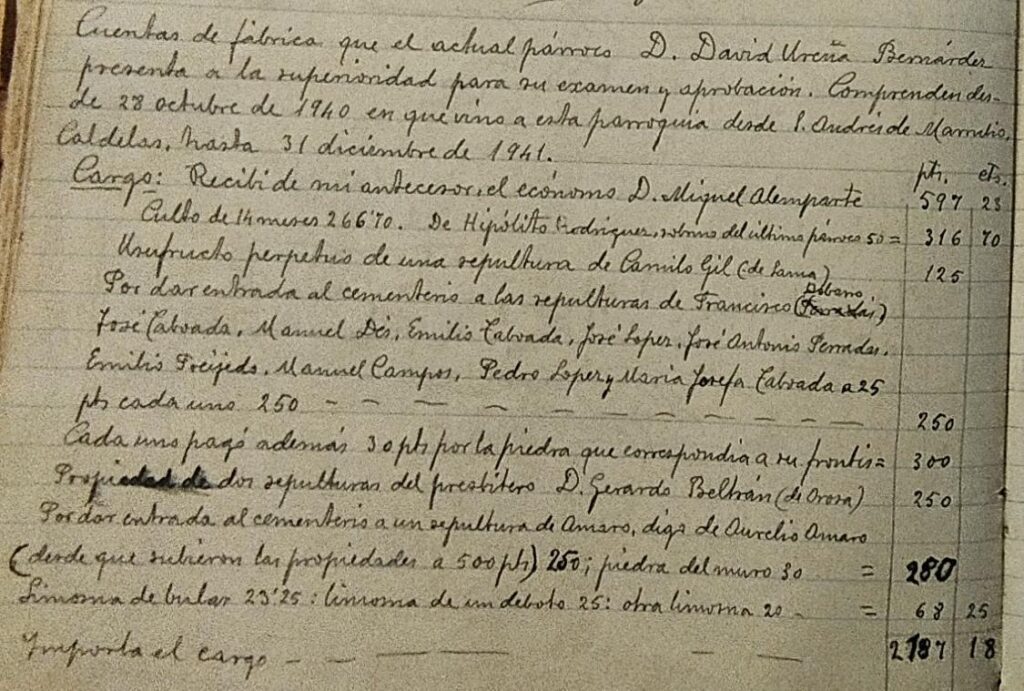 Cuentas de fábrica que el actual párroco D. David Ureña Bernárdez
presenta a la superioridad para su examen y aprobación. Comprenden des-
de 28 octubre de 1940 en que vino a esta parroquia desde S. Andrés de
Caldelas, hasta 31 diciembre de 1941.
pts. cts.
Cargo: Recibi de mi antecesor, el ecónomo D. Miguel Alemparte 597 23
Culto de 14 meses 266'70. De Hipólito Rodriguez, sobrino del último párroco 50 = 316 70
Usufructo perpetuo de una sepultura de Camilo Gil (de Lama) 125
Por dar entrada al cementerio a las sepulturas de Francisco
José Taboada, Manuel Dés, Emilio Taboada, José Lopez, José Antonio Perradas,
Emilio Freijedo, Manuel Campos, Pedro Lopez y Maria Josefa Taboada a 25
pts cada uno 250 — — — — — — — — — 250
Cada uno pagó además 30 pts por la piedra que correspondia a su frontis = 300
Propiedad de dos sepulturas del presbitero D. Gerardo Beltrán (de Orosa) 250
Por dar entrada al cementerio a un sepultura de Amaro, digo de Aurelio Amaro
(desde que subieron las propiedades a 500 pts) 250; piedra del muro 30 = 280
Limosna de bulas 23'25: limosna de un deboto 25: otra limosna 20 - = 68 25
Importa el cargo — — — — — — 2187 18